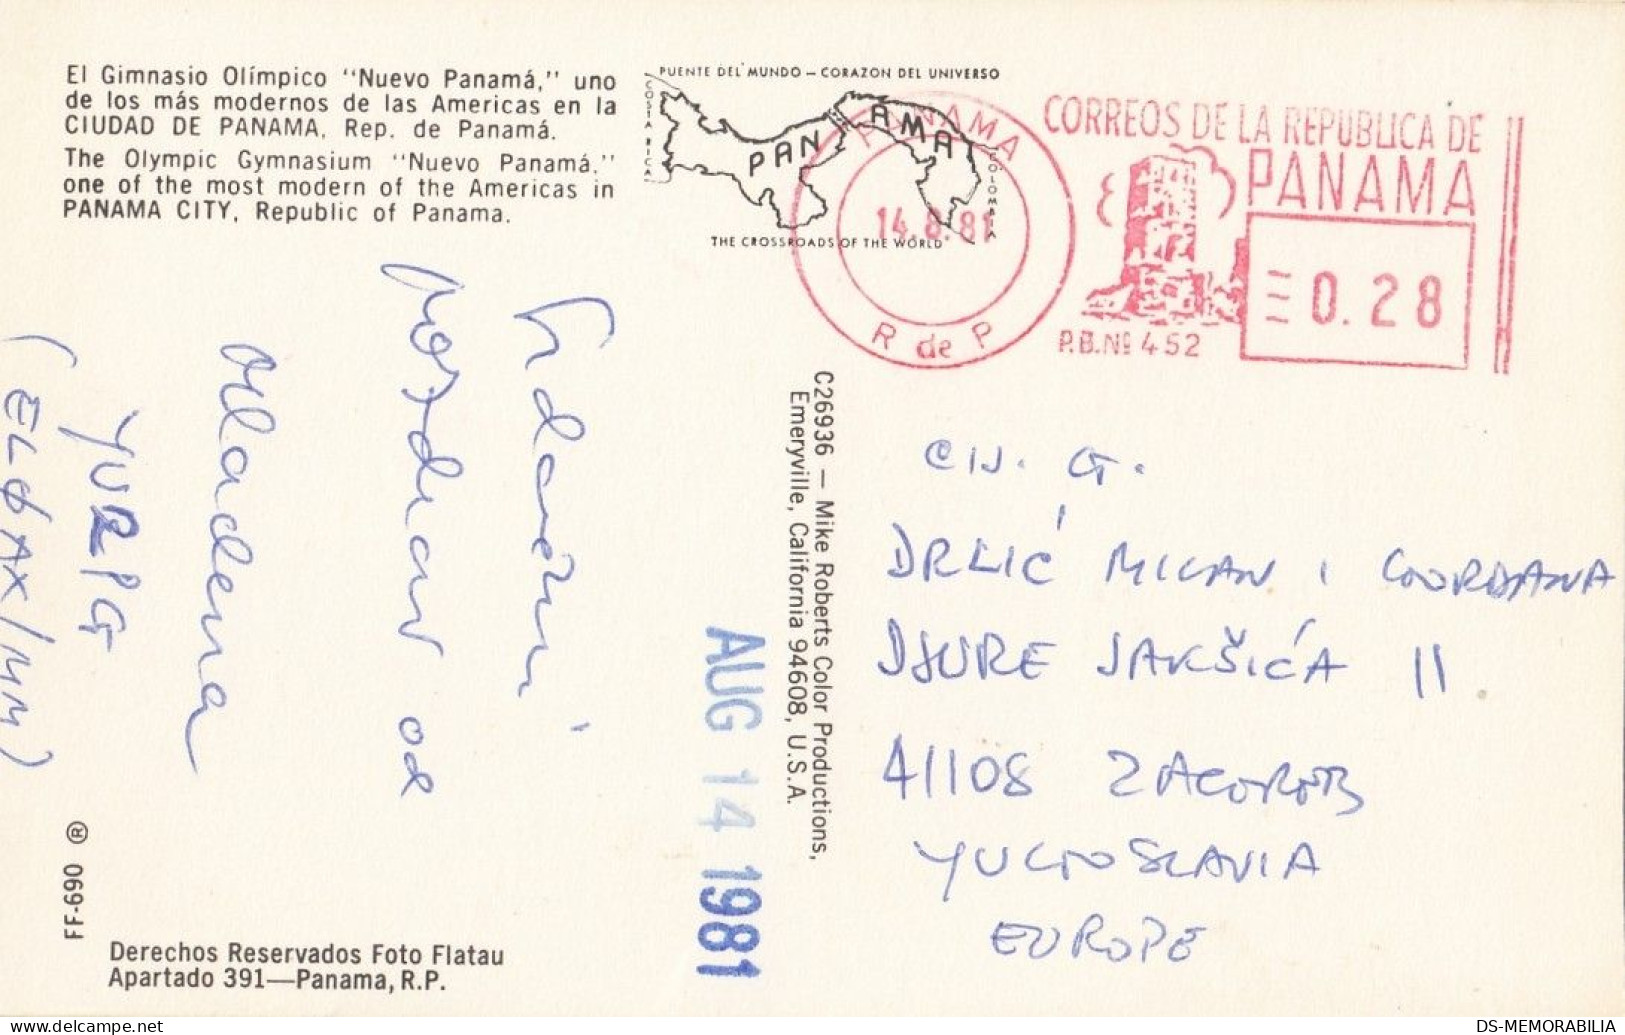 El Gimnasio Olímpico "Nuevo Panamá," uno
de los más modernos de las Americas en la
CIUDAD DE PANAMA, Rep. de Panamá.
The Olympic Gymnasium "Nuevo Panamá."
one of the most modern of the Americas in
PANAMA CITY, Republic of Panama.
PUENTE DEL MUNDO – CORAZON DEL UNIVERSO
COSTA RICA
PANAMA
COLOMBIA
THE CROSSROADS OF THE WORLD
PANAMA
14.8.81
R de P
CORREOS DE LA REPUBLICA DE
PANAMA
0.28
P.B.Nº 452
pozdrav od
Mladena
YURPG
(EL6AX/MM)
C26936 – Mike Roberts Color Productions,
Emeryville, California 94608, U.S.A.
AUG 14 1981
CIJ. G.
DRLIĆ MILAN I GORDANA
DJURE JAKŠIĆA 11
41108 ZAGREB
YUGOSLAVIA
EUROPE
FF-690 ®
Derechos Reservados Foto Flatau
Apartado 391—Panama, R.P.
DS-MEMORABILIA